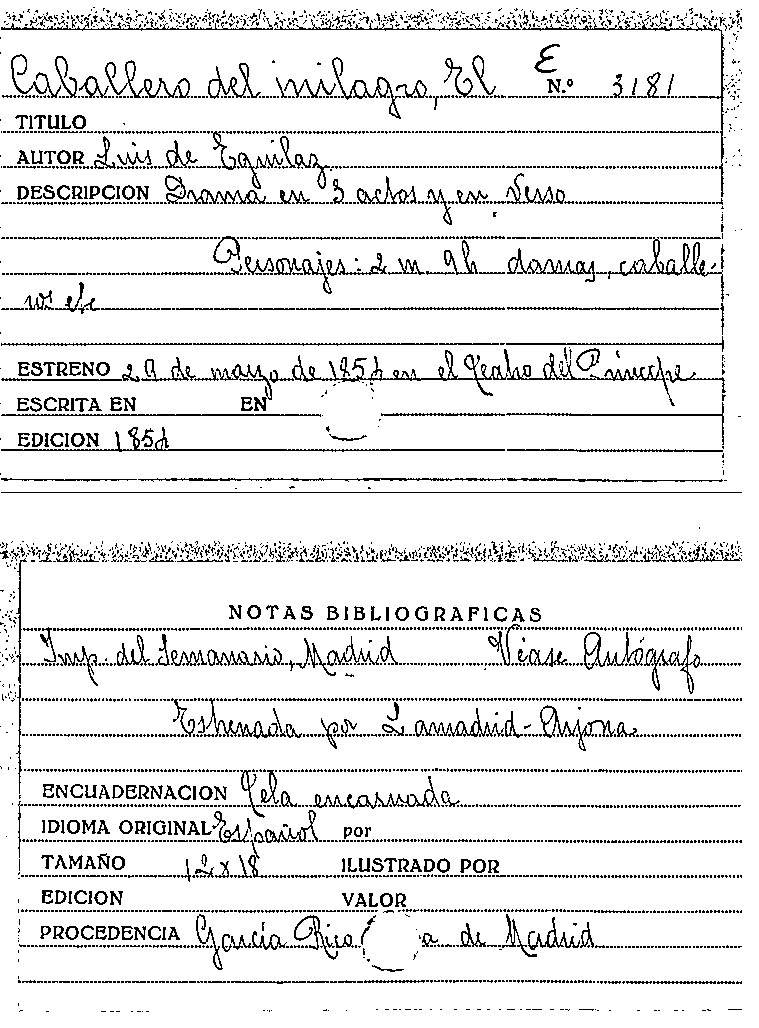 Caballero del milagro, El E N.º 3181
TITULO
AUTOR Luis de Eguilaz
DESCRIPCION Drama en 3 actos y en verso
Personajes: 2 m. 9 h damas, caballe-
ros etc
ESTRENO 29 de marzo de 1854 en el Teatro del Príncipe
ESCRITA EN EN
EDICION 1854
NOTAS BIBLIOGRAFICAS
Imp. del Semanario, Madrid Véase Autógrafo
Estrenada por Lamadrid-Arjona
ENCUADERNACION Tela encarnada
IDIOMA ORIGINAL Español por
TAMAÑO 12 x 18 ILUSTRADO POR
EDICION VALOR
PROCEDENCIA García Rico a de Madrid